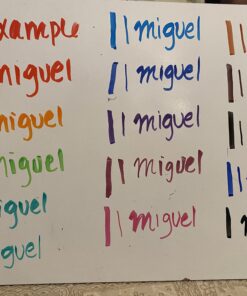 xample
miguel
miguel
miguel
iguel
guel
miguel
miguel
miguel
miguel
miguel